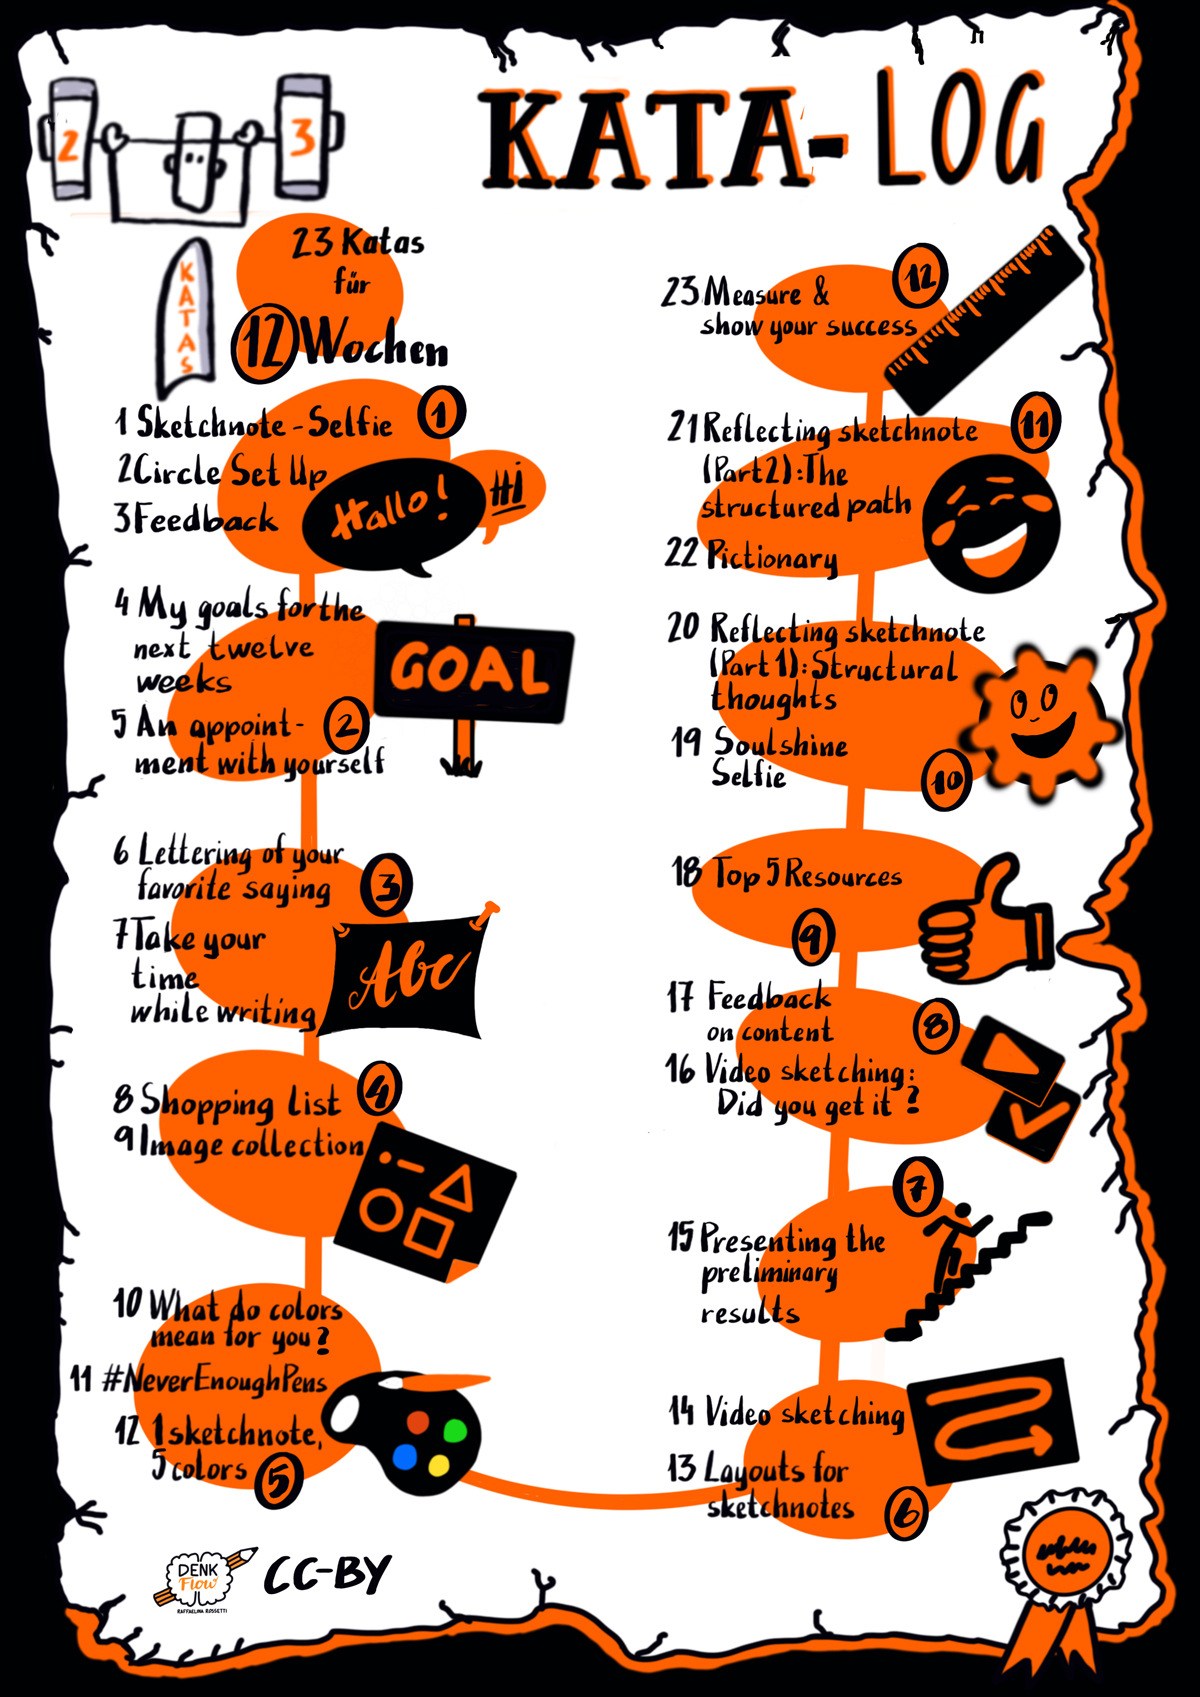 KATA-LOG
2 3
KATAS
23 Katas
für
12 Wochen
1 Sketchnote-Selfie
1
2 Circle Set Up
3 Feedback
Hallo!
Hi
4 My goals for the
next twelve
weeks
GOAL
5 An appoint-
ment with yourself
2
6 Lettering of your
favorite saying
3
7 Take your
time
while writing
Abc
8 Shopping list
4
9 Image collection
10 What do colors
mean for you?
11 #NeverEnoughPens
12 1 sketchnote,
5 colors
5
23 Measure &
show your success
12
21 Reflecting sketchnote
(Part 2): The
structured path
11
22 Pictionary
20 Reflecting sketchnote
(Part 1): Structural
thoughts
19 Soulshine
Selfie
10
18 Top 5 Resources
9
17 Feedback
on content
8
16 Video sketching:
Did you get it?
7
15 Presenting the
preliminary
results
14 Video sketching
13 Layouts for
sketchnotes
6
DENK
Flow
RAFFAELINA ROSSETTI
CC-BY